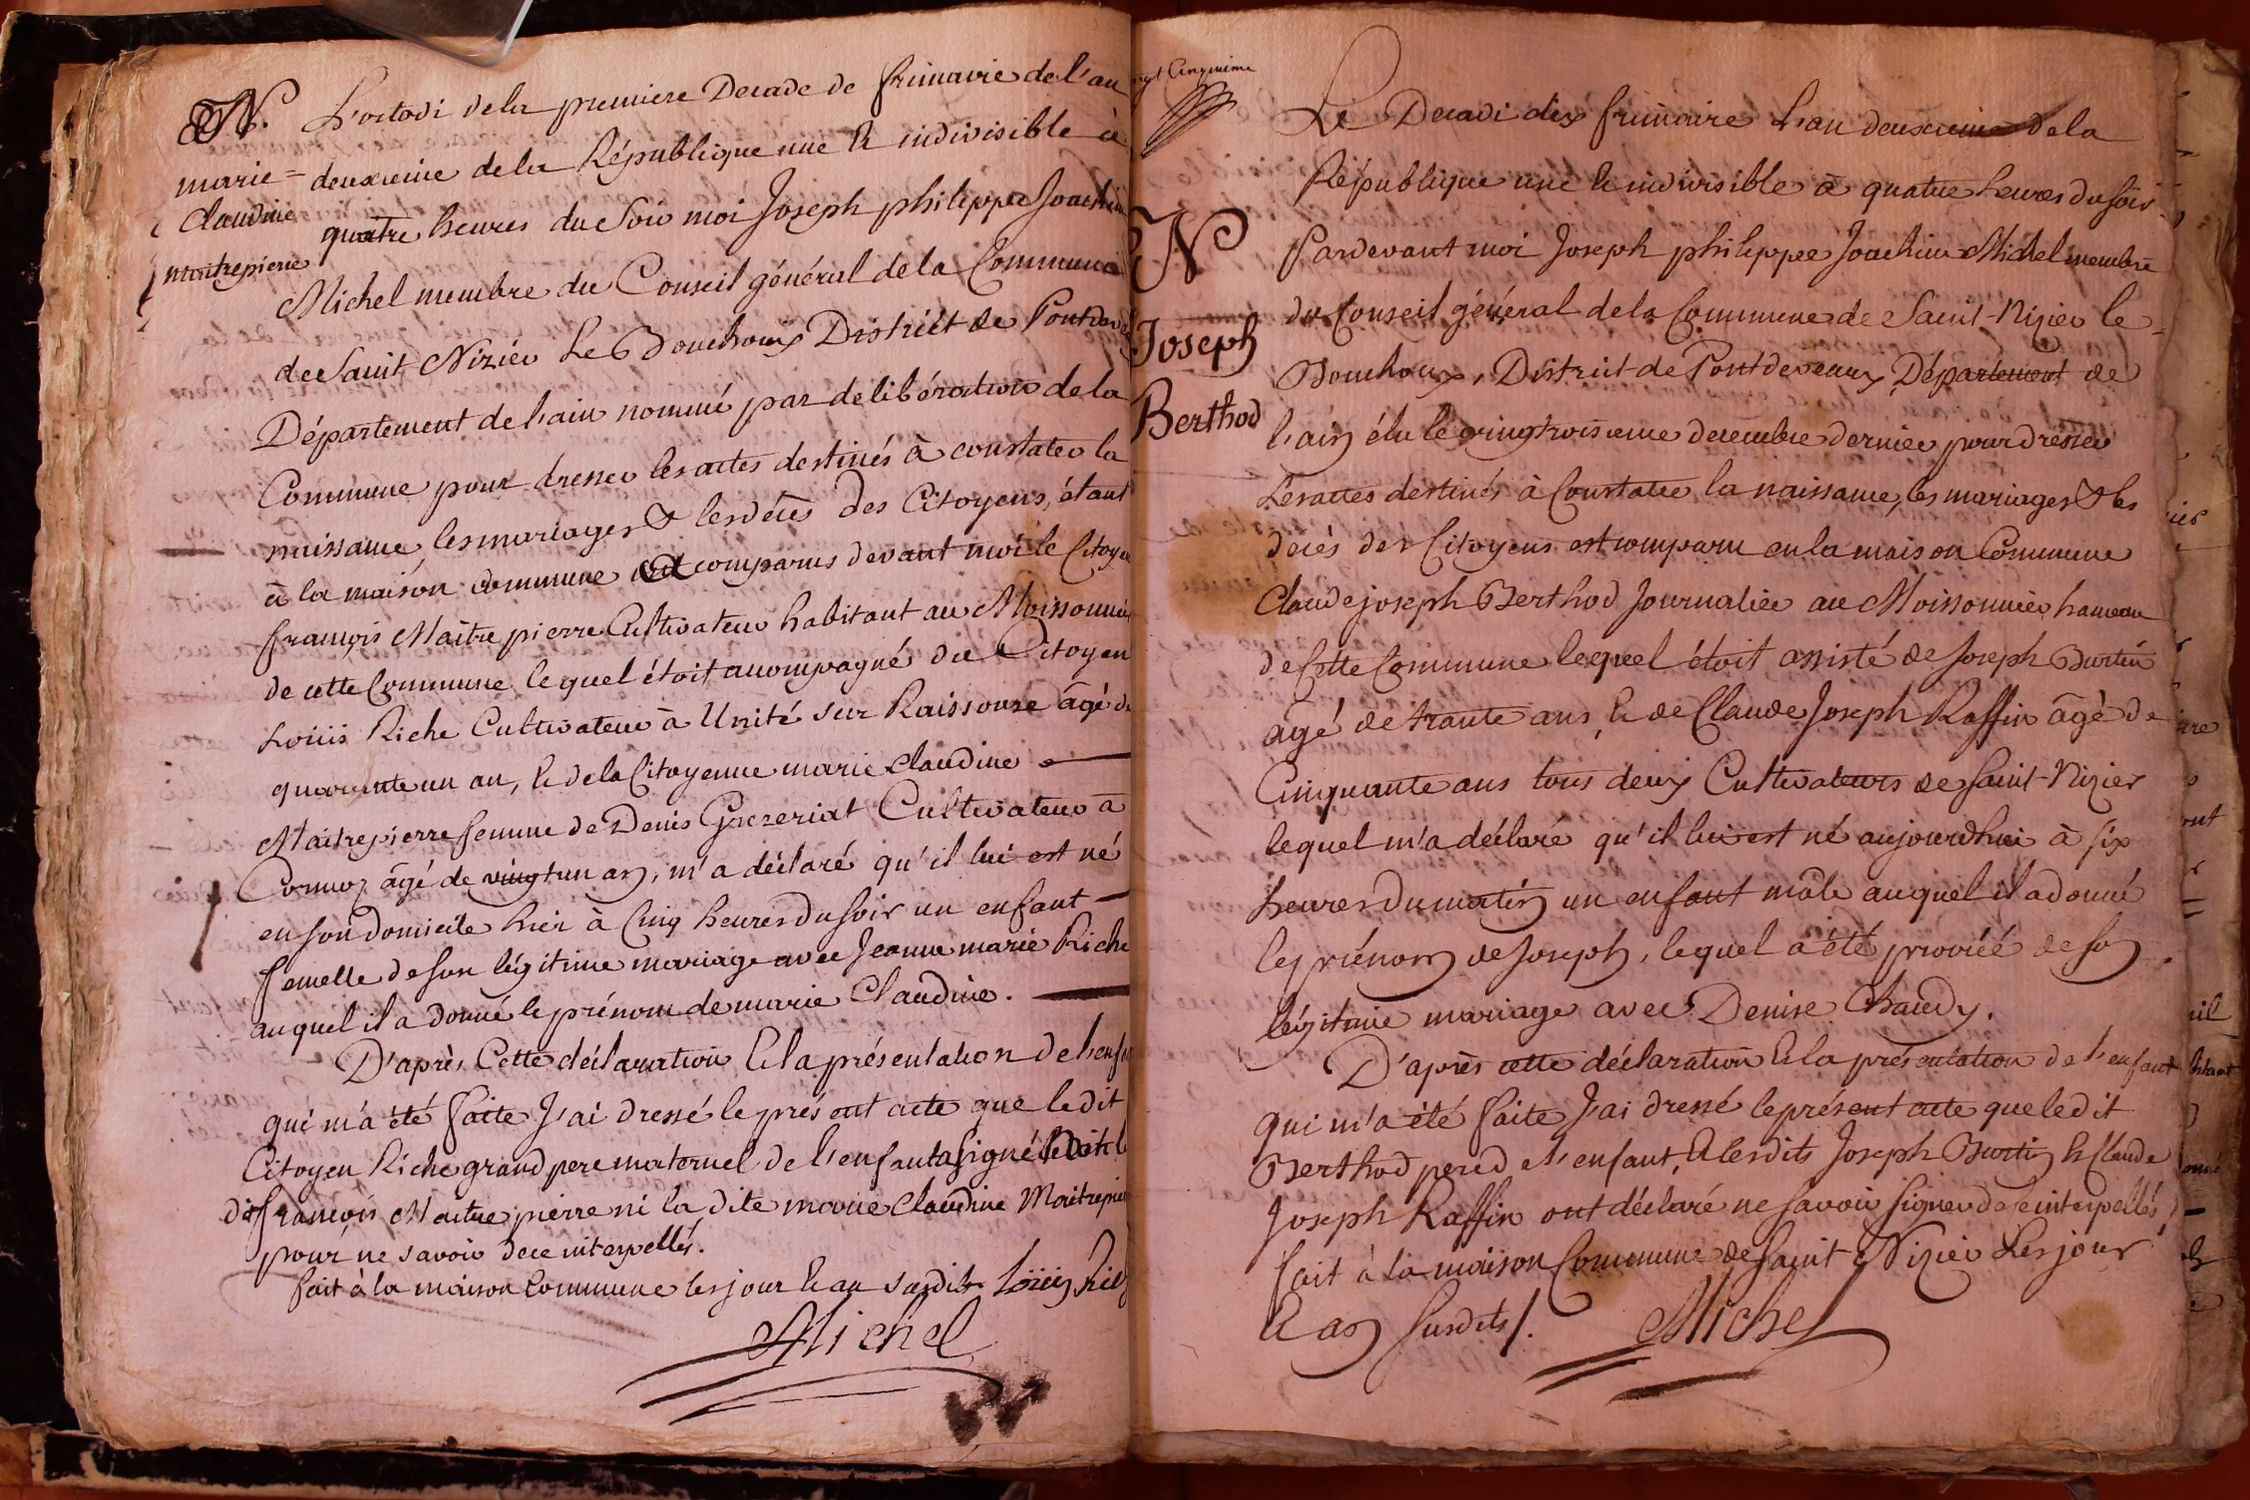 N.
marie =
Claudine
maitrepierre
L'octodi de la premiere Decade de frimaire de l'an
deuxieme de la République une & indivisible à
quatre heures du Soir moi Joseph philippe Joachim
Michel membre du Conseil général de la Commune
de Saint Nizier Le Bouchoux District de Pontdeve
Département de l'ain nommé par deliberation de la
Commune pour dresser les actes destinés à constater la
naissance, les mariages & les décès des Citoyens, étant
à la maison commune est comparus devant moi le Citoye
françois Maitre pierre Cultivateur habitant au Moissonnier
de cette Commune lequel étoit accompagné du Citoyen
Loüis Riche Cultivateur à Unité sur Raissouse âgé de
quarante un an, & de la Citoyenne marie claudine
Maitrepierre femme de Denis Grezeriat Cultivateur à
Cormoz âgé de vingt un an, m'a déclaré qu'il lui est né
en son domicile hier à Cinq heures du soir un enfant
femelle de son légitime mariage avec Jeanne marie Riche
auquel il a donné le prénom de marie Claudine.
D'après Cette déclaration & la présentation de l'enfa
qui m'a été faite J'ai dressé le présent acte que le dit
Citoyen Riche grand pere maternel de l'enfant a signé
dit françois Maitre pierre ni la dite marie Claudine Maitrepier
pour ne savoir de ce interpellés.
fait à la maison Commune les jour & an susdits Loüis Riche
Michel
vingt Cinquieme
N
Joseph
Berthod
Le Decadi dix frimaire l'an deuxieme de la
République une & indivisible à quatre heures du soir
Pardevant moi Joseph philippe Joachim Michel membre
du Conseil général de la Commune de Saint-Nizier le-
Bouchoux, District de Pontdevaux, Département de
l'ain élu le vingtroisieme decembre dernier pour dresser
Les actes destinés à Constater la naissance, les mariages & les
decés des Citoyens est comparu en la maison Commune
Claude joseph Berthod Journalier au Moissonnier hameau
de Cette Commune lequel étoit assisté de Joseph Burtin
âgé de trante ans, & de Claude Joseph Raffin âgé de
Cinquante ans tous deux Cultivateurs de Saint-Nizier
lequel m'a déclaré qu'il lui est né aujourdhui à six
heures du matin un enfant mâle auquel il a donné
le prénom de Joseph, lequel a été procréé de son
légitime mariage avec Denise Chaudy.
D'après cette déclaration & la présentation de l'enfant
qui m'a été faite J'ai dressé le présent acte que le dit
Berthod pere de l'enfant, & lesdits Joseph Burtin & Claude
Joseph Raffin ont déclaré ne savoir signer de ce interpellés,
fait à la maison Commune de Saint Nizier Les jour
& an susdits/.
Michel